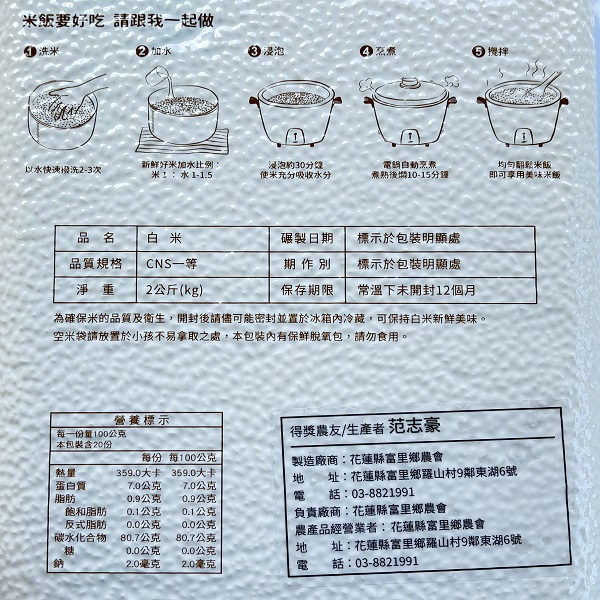 米飯要好吃 請跟我一起做
1 洗米
2 加水
3 浸泡
4 烹煮
5 攪拌
以水快速撥洗2-3次
新鮮好米加水比例：
米1：水1-1.5
浸泡約30分鐘
使米充分吸收水分
電鍋自動烹煮
煮熟後燜10-15分鐘
均勻翻鬆米飯
即可享用美味米飯
品 名 白 米 碾製日期 標示於包裝明顯處
品質規格 CNS一等 期作別 標示於包裝明顯處
淨 重 2公斤(kg) 保存期限 常溫下未開封12個月
為確保米的品質及衛生，開封後請儘可能密封並置於冰箱內冷藏，可保持白米新鮮美味。
空米袋請放置於小孩不易拿取之處，本包裝內有保鮮脫氧包，請勿食用。
營養標示
每一份量100公克
本包裝含20份
每份 每100公克
熱量 359.0大卡 359.0大卡
蛋白質 7.0公克 7.0公克
脂肪 0.9公克 0.9公克
飽和脂肪 0.1公克 0.1公克
反式脂肪 0.0公克 0.0公克
碳水化合物 80.7公克 80.7公克
糖 0.0公克 0.0公克
鈉 2.0毫克 2.0毫克
得獎農友/生產者 范志豪
製造廠商：花蓮縣富里鄉農會
地 址：花蓮縣富里鄉羅山村9鄰東湖6號
電 話：03-8821991
負責廠商：花蓮縣富里鄉農會
農產品經營業者：花蓮縣富里鄉農會
地 址：花蓮縣富里鄉羅山村9鄰東湖6號
電 話：03-8821991